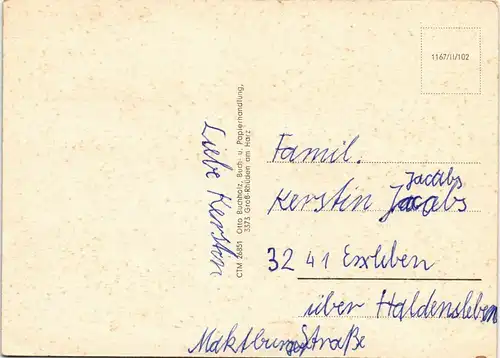 1167/II/102
Liebe Kerstin
CTM 26851 Otto Buchholz, Buch- u. Papierhandlung,
3373 Groß-Rhüden am Harz
Famil.
Jacobs
Kerstin Jacobs
3241 Erxleben
über Haldensleben
Straße